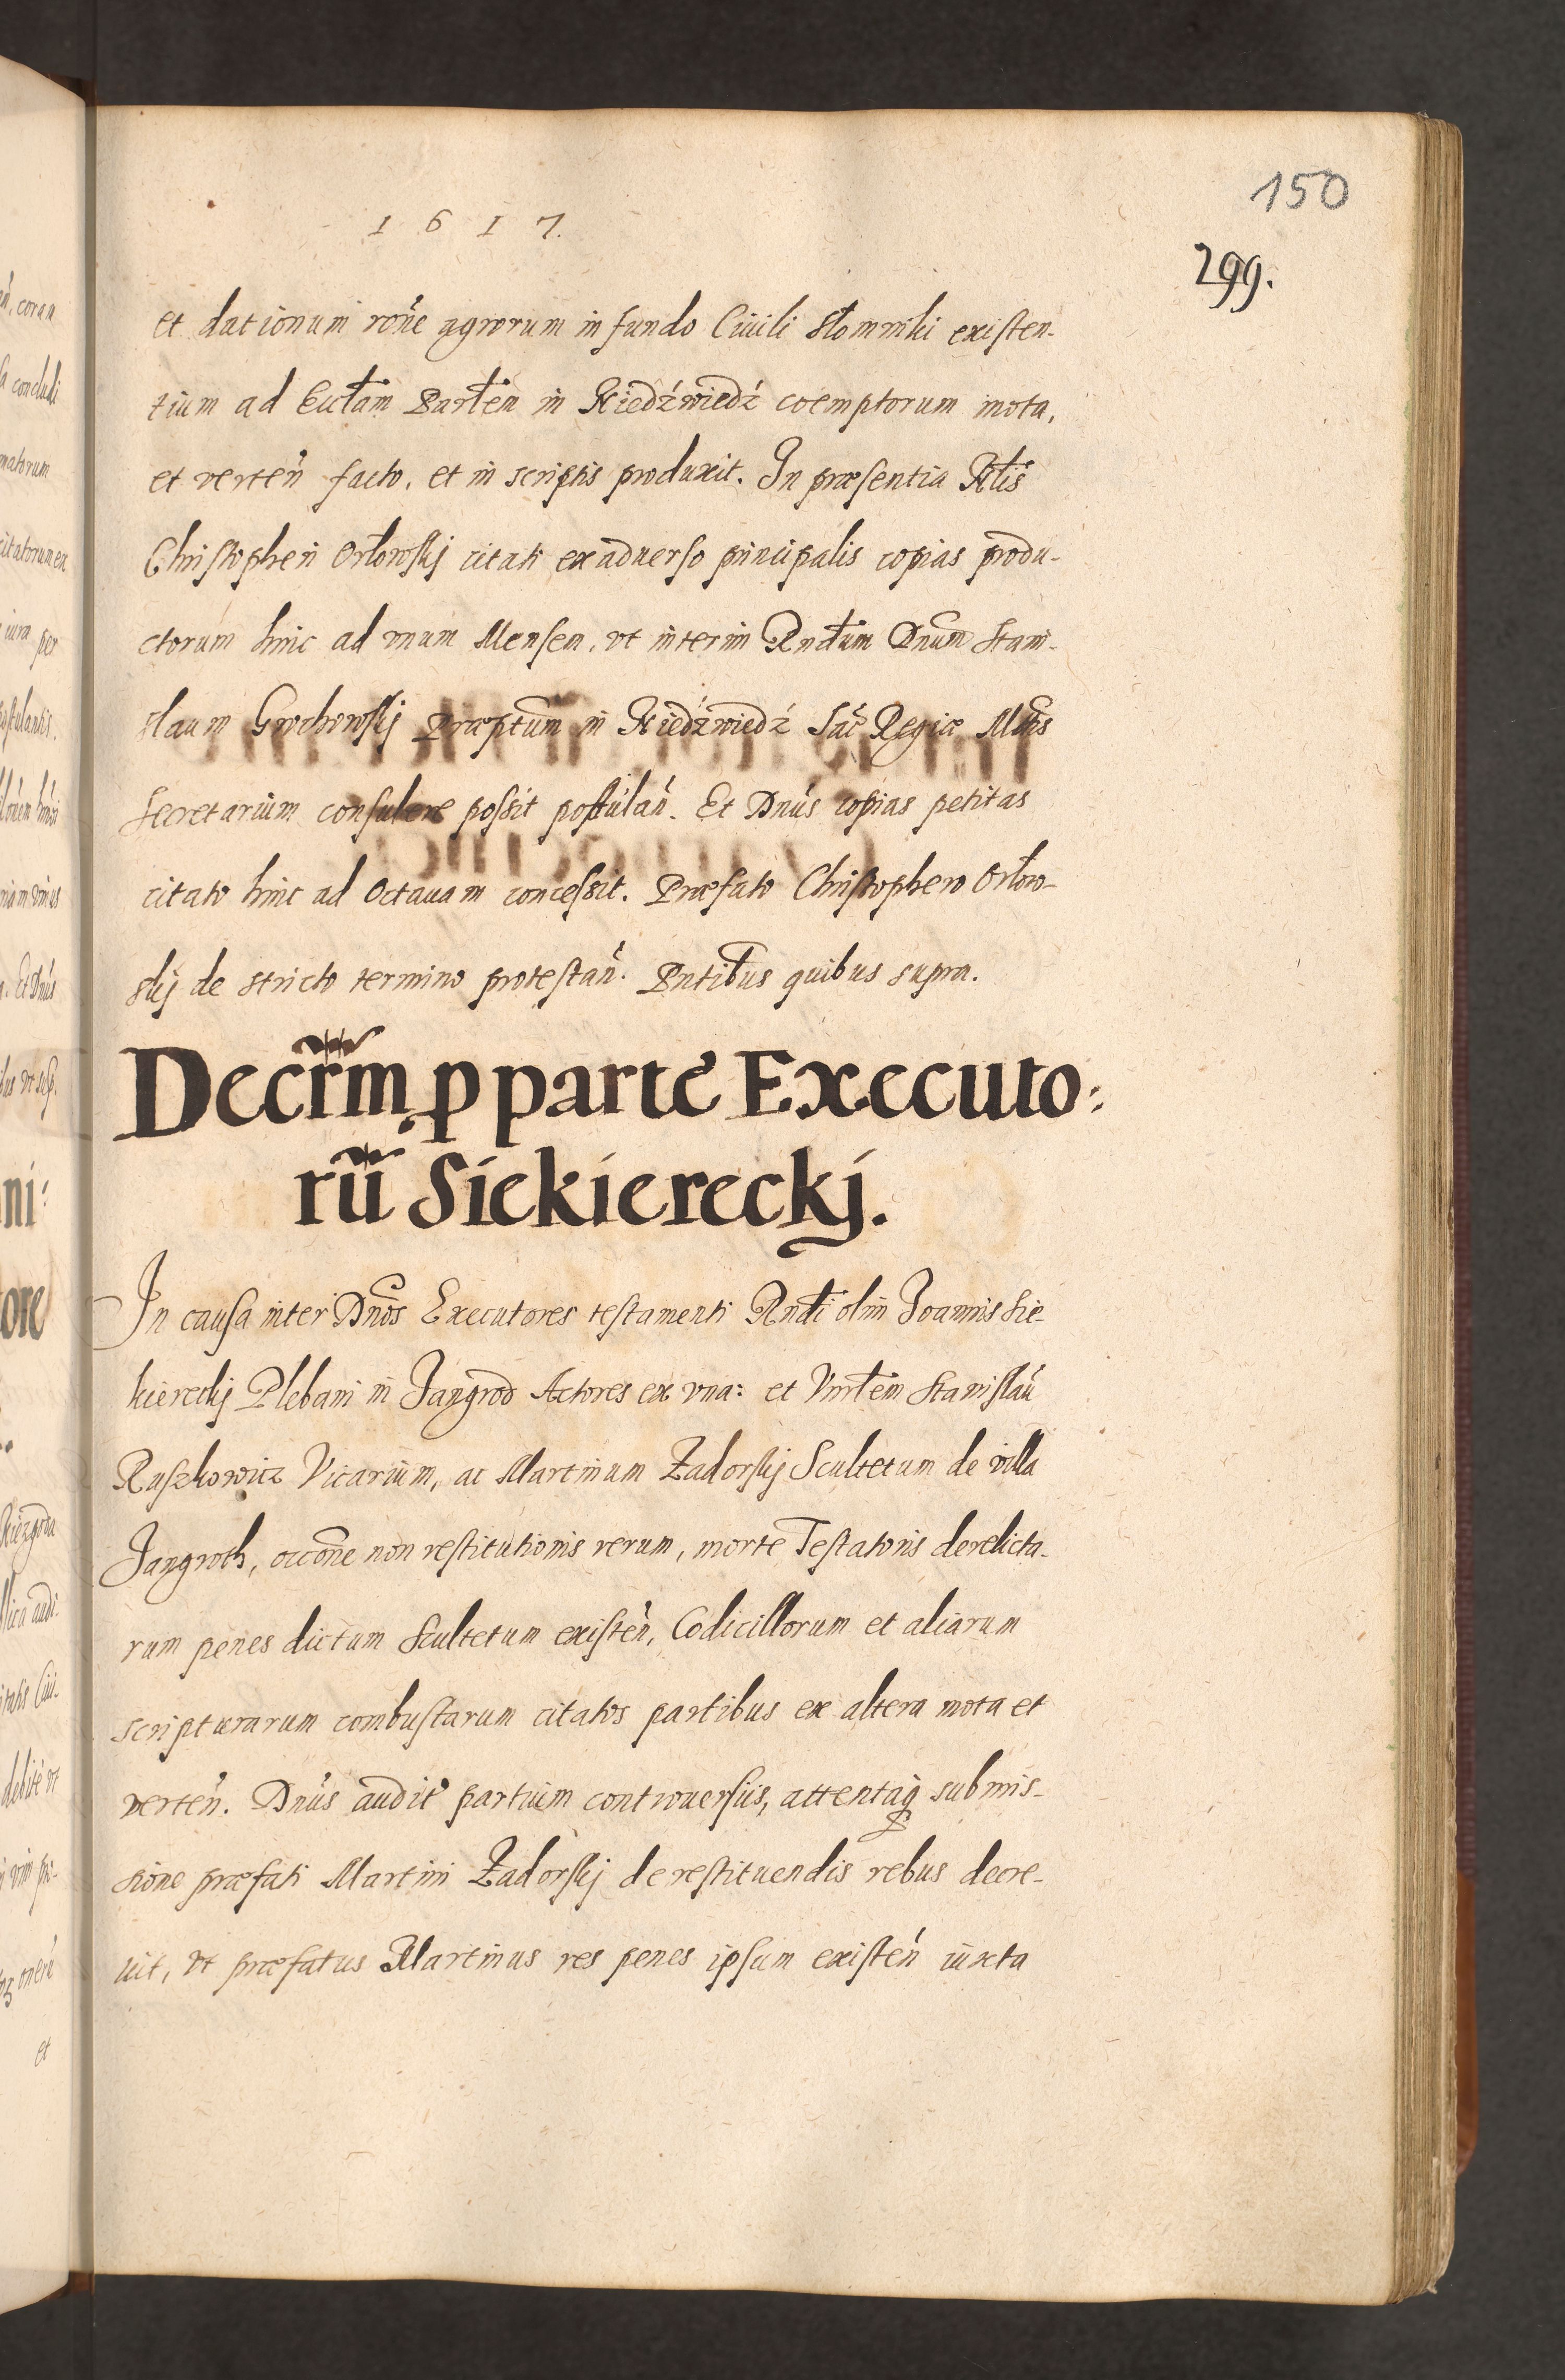 150
1617.
299.
et dationum rõne agrorum in fundo Ciuili Słomniki existen-
tium ad Ecctam Partem in Niedźwiedź coemptorum mota,
et verteñ facto, et in scriptis produxit. In præsentia Nłis
Christopheri Orłowskj citati ex aduerso principalis copias produ-
ctorum hinc ad vnum Mensem, vt interim Rndum Dnum Stani-
slaum Grochowskj Præptum in Niedźwiedź Sac Regiæ Mtis
Secretarium consulere possit postulañ. Et Dnus copias petitas
citato hinc ad Octauam concessit. Præfato Christophero Orłow-
skj de stricto termino protestañ. Pntibus quibus supra.
Decrm p parte Executo:
rũ Siekiereckj.
In causa inter Dnos Executores testamenti Rndi olim Joannis Sie-
kiereckj Plebani in Jangrod Actores ex vna: et Vnrlem Stanislaũ
Ruszkowicz Vicarium, ac Martinum Zadorskj Scultetum de villa
Jangroth, occone non restitutionis rerum, morte Testatoris derelicta-
rum penes dictum Scultetum existeñ, Codicillorum et aliarum
scripturarum combustarum citatos partibus ex altera mota et
verteñ. Dnus audit partium controuersijs, attentaq submis-
sione præfati Martini Zadorskj de restituendis rebus decre-
uit, vt præfatus Martinus res penes ipsum existeñ iuxta